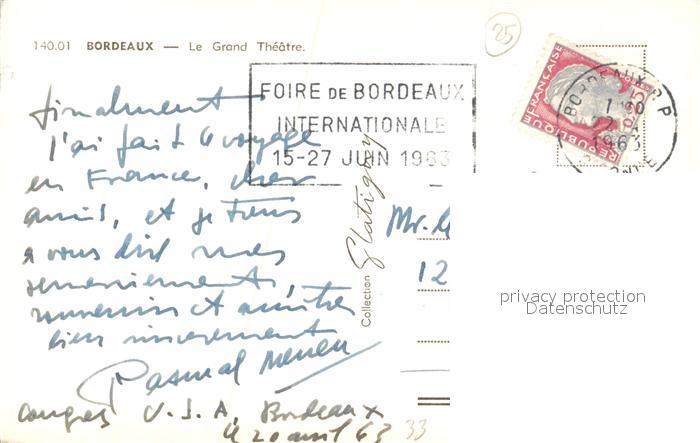 140.01 BORDEAUX — Le Grand Théâtre.
25
FOIRE DE BORDEAUX
INTERNATIONALE
15-27 JUIN 1963
REPUBLIQUE FRANÇAISE
0,25
BORDEAUX R.P
1963
GIRONDE
finalment
j'ai fait le voyage
en France, chers
amis, et je tiens
a vous dire mes
remerciements,
et
bien sincerement
Pascual
congrès U.S.A, Bordeaux
le 20 avril 63
33
Collection Glatigny
Mr.
12
privacy protection
Datenschutz